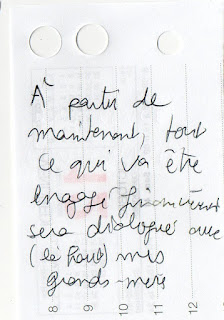 À partir de
maintenant, tout
ce qui va être
engagé financièrement
sera dialogué avec
(là haut) mes
grands-mère
8 9 10 11 12